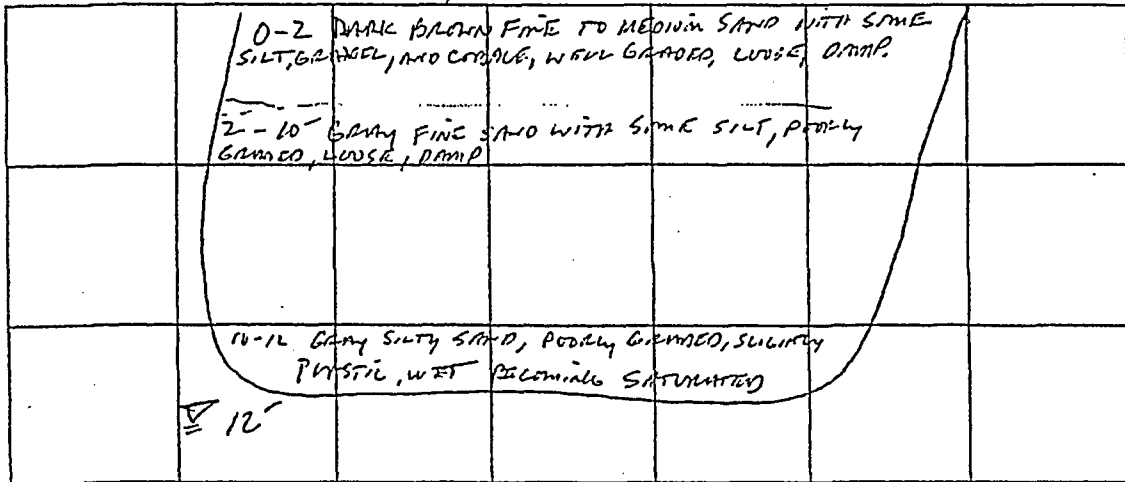 0-2 DARK BROWN FINE TO MEDIUM SAND WITH SOME
SILT, GRAVEL, AND COBBLE, WELL GRADED, LOOSE, DAMP.
2'-10' GRAY FINE SAND WITH SOME SILT, POORLY
GRADED, LOOSE, DAMP
10-12 GRAY SILTY SAND, POORLY GRADED, SLIGHTLY
PLASTIC, WET BECOMING SATURATED
12'